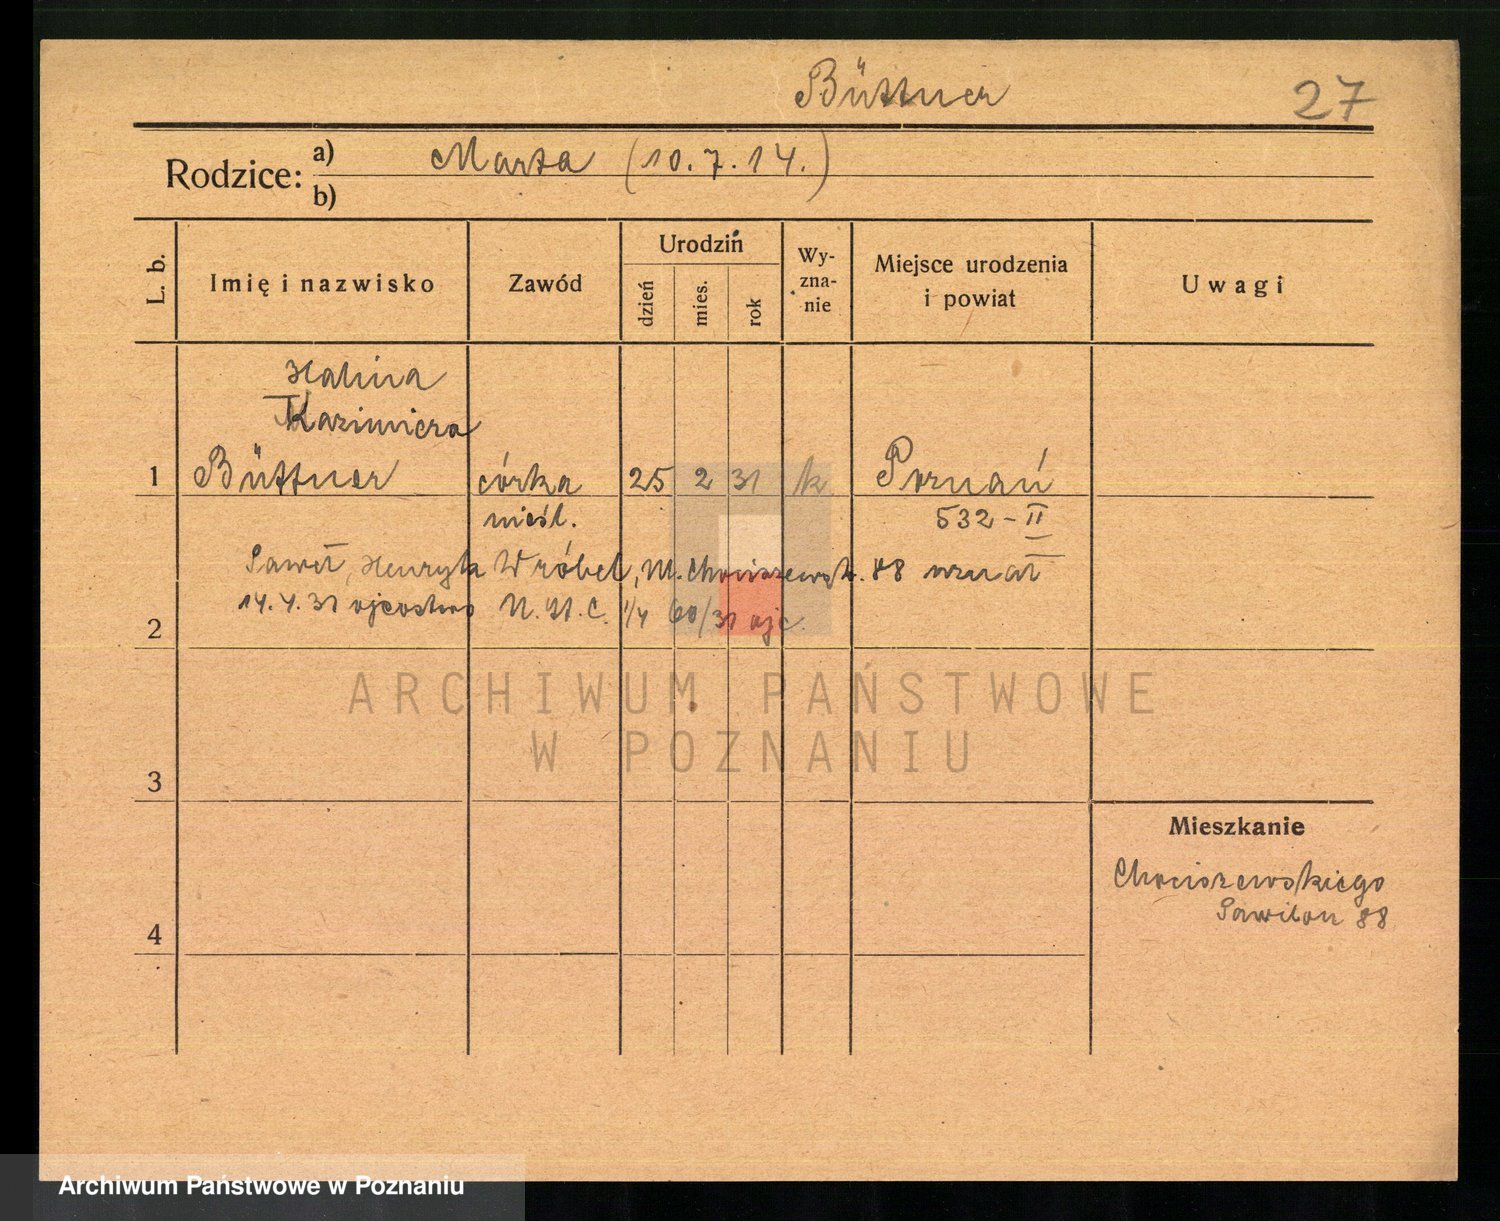 Büttner 27
Rodzice: a) Marta (10.7.14.)
b)
L. b. Imię i nazwisko Zawód Urodzin dzień mies. rok Wyznanie Miejsce urodzenia i powiat Uwagi
Halina
Kazimiera
1 Büttner córka 25 2 31 k Poznań
nieśl. 532 - II
Paweł, Henryk Wróbel, M. Chociszewsk. 88 uznał
14.4.31 ojcostwo U.St.C. 1/4 60/31 ojc.
2
ARCHIWUM PAŃSTWOWE
W POZNANIU
3
Mieszkanie
Chociszewskiego
Pawilon 88
4
Archiwum Państwowe w Poznaniu